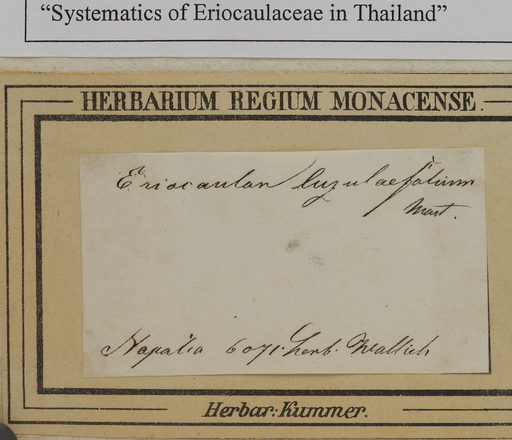 “Systematics of Eriocaulaceae in Thailand”
HERBARIUM REGIUM MONACENSE.
Eriocaulon luzulaefolium
Mart.
Napalia 6071. herb. Wallich
Herbar: Kummer.